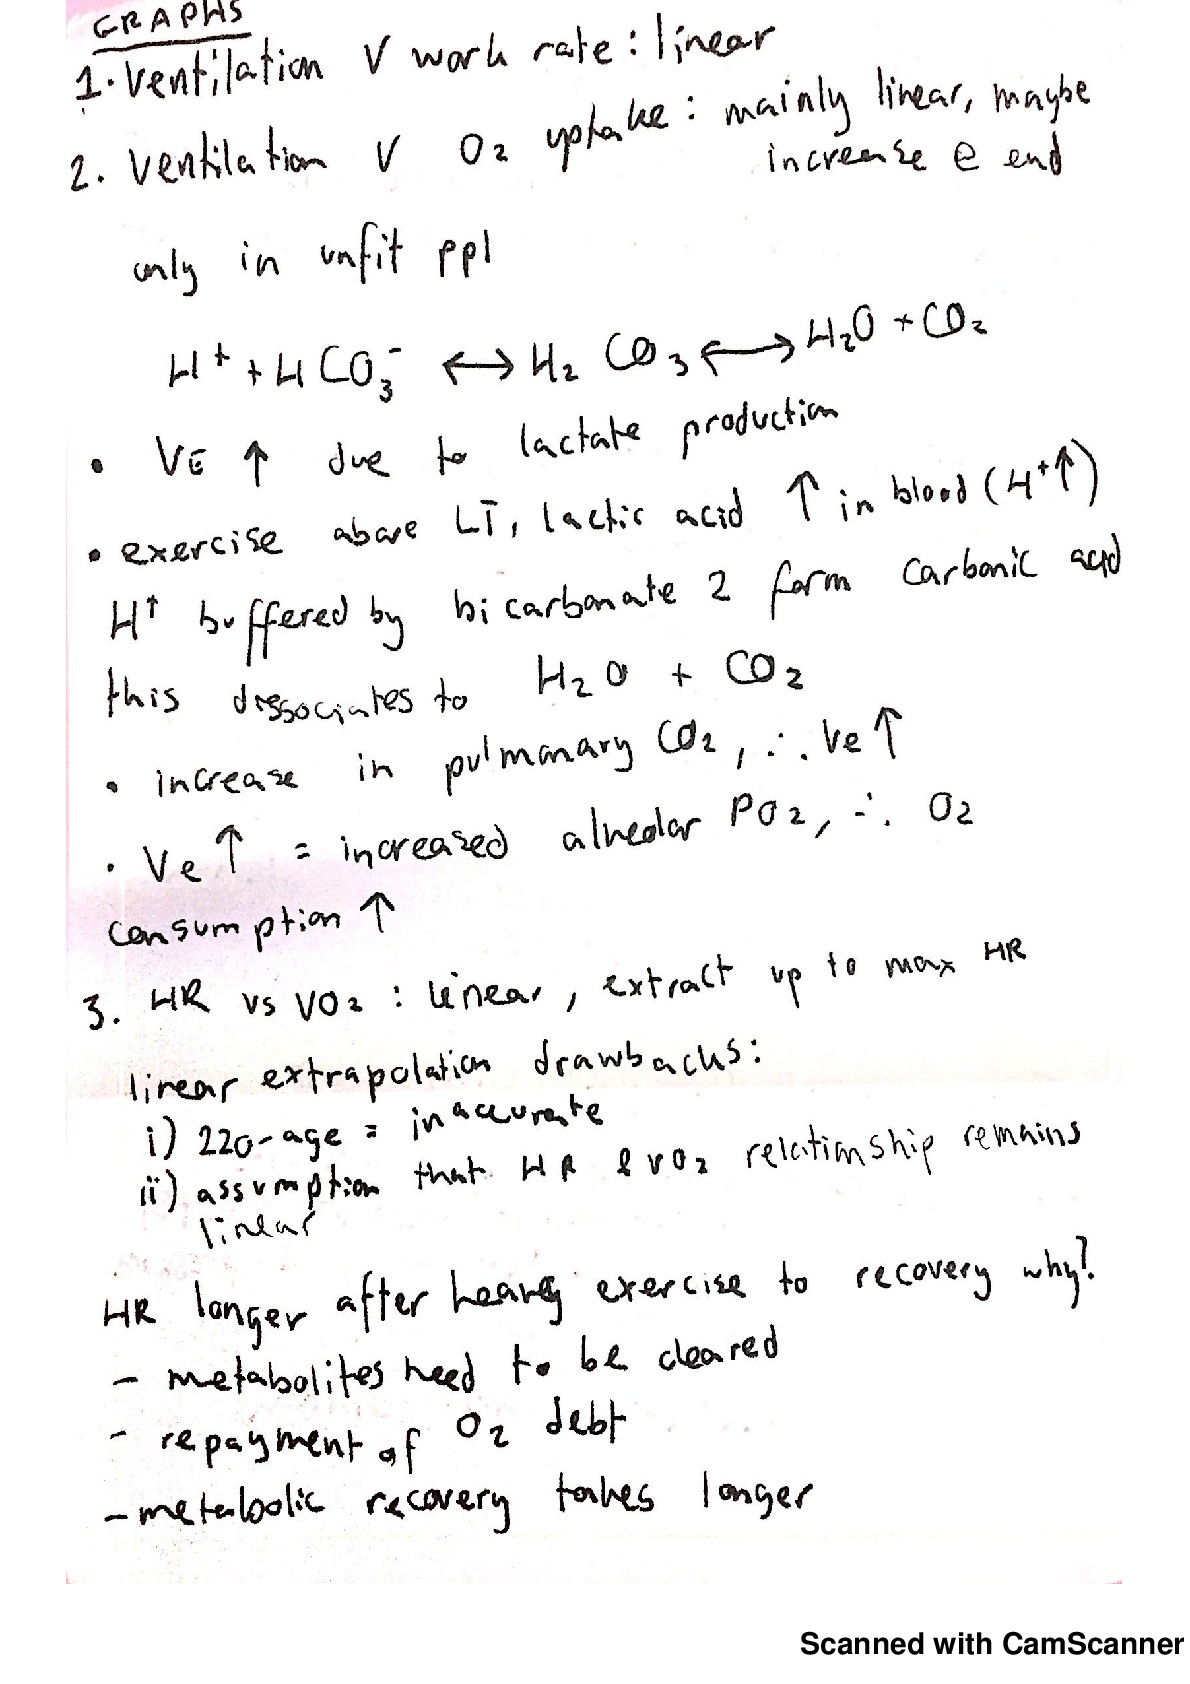 GRAPHS
1. Ventilation V work rate : linear
2. Ventilation V O2 uptake : mainly linear, maybe
increase @ end
only in unfit ppl
H⁺ + HCO₃⁻ ↔ H₂CO₃ ↔ H₂O + CO₂
• VE ↑ due to lactate production
• exercise above LT, lactic acid ↑ in blood (H⁺↑)
H⁺ buffered by bicarbonate 2 form carbonic acid
this dissociates to H₂O + CO₂
• increase in pulmonary CO₂, ∴ Ve ↑
• Ve ↑ = increased alveolar PO₂, ∴ O₂
consumption ↑
3. HR vs VO₂ : linear, extract up to max HR
linear extrapolation drawbacks:
i) 220-age = inaccurate
ii) assumption that HR & VO₂ relationship remains
linear
HR longer after heavy exercise to recovery why?
- metabolites need to be cleared
- repayment of O₂ debt
- metabolic recovery takes longer
Scanned with CamScanner